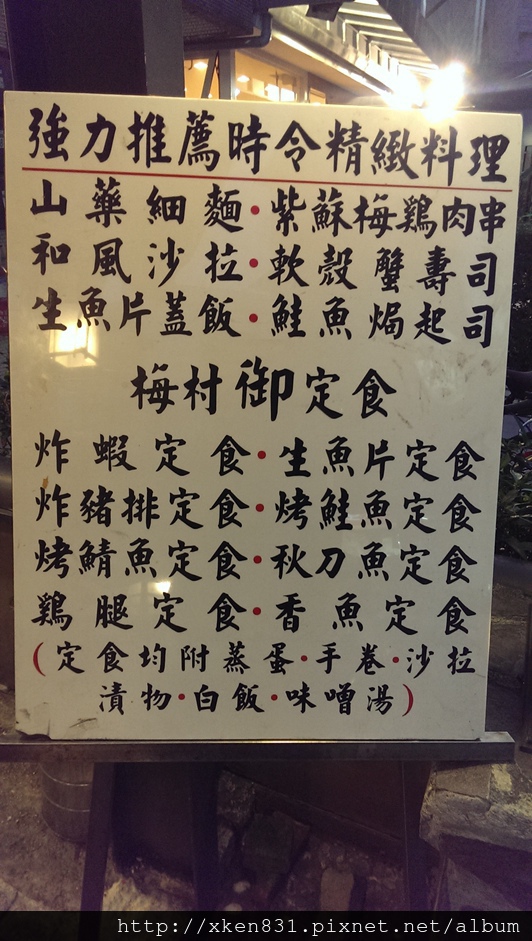 強力推薦時令精緻料理
山藥細麵·紫蘇梅鷄肉串
和風沙拉·軟殼蟹壽司
生魚片蓋飯·鮭魚焗起司
梅村御定食
炸蝦定食·生魚片定食
炸豬排定食·烤鮭魚定食
烤鯖魚定食·秋刀魚定食
鷄腿定食·香魚定食
(定食均附蒸蛋·手卷·沙拉
漬物·白飯·味噌湯)
http://xken831.pixnet.net/album